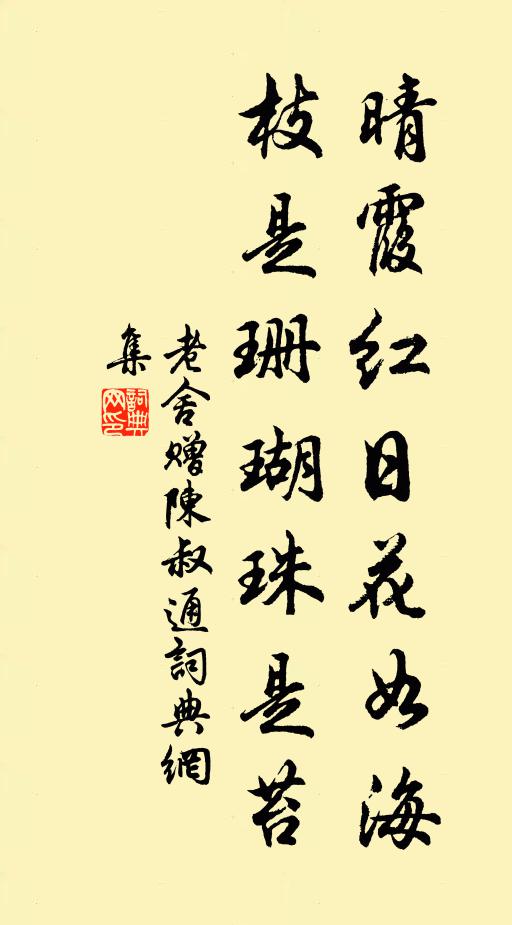 晴霞红日花如海
枝是珊瑚珠是苔
老舍赠陳叔通詞典網
集
詞典
网印